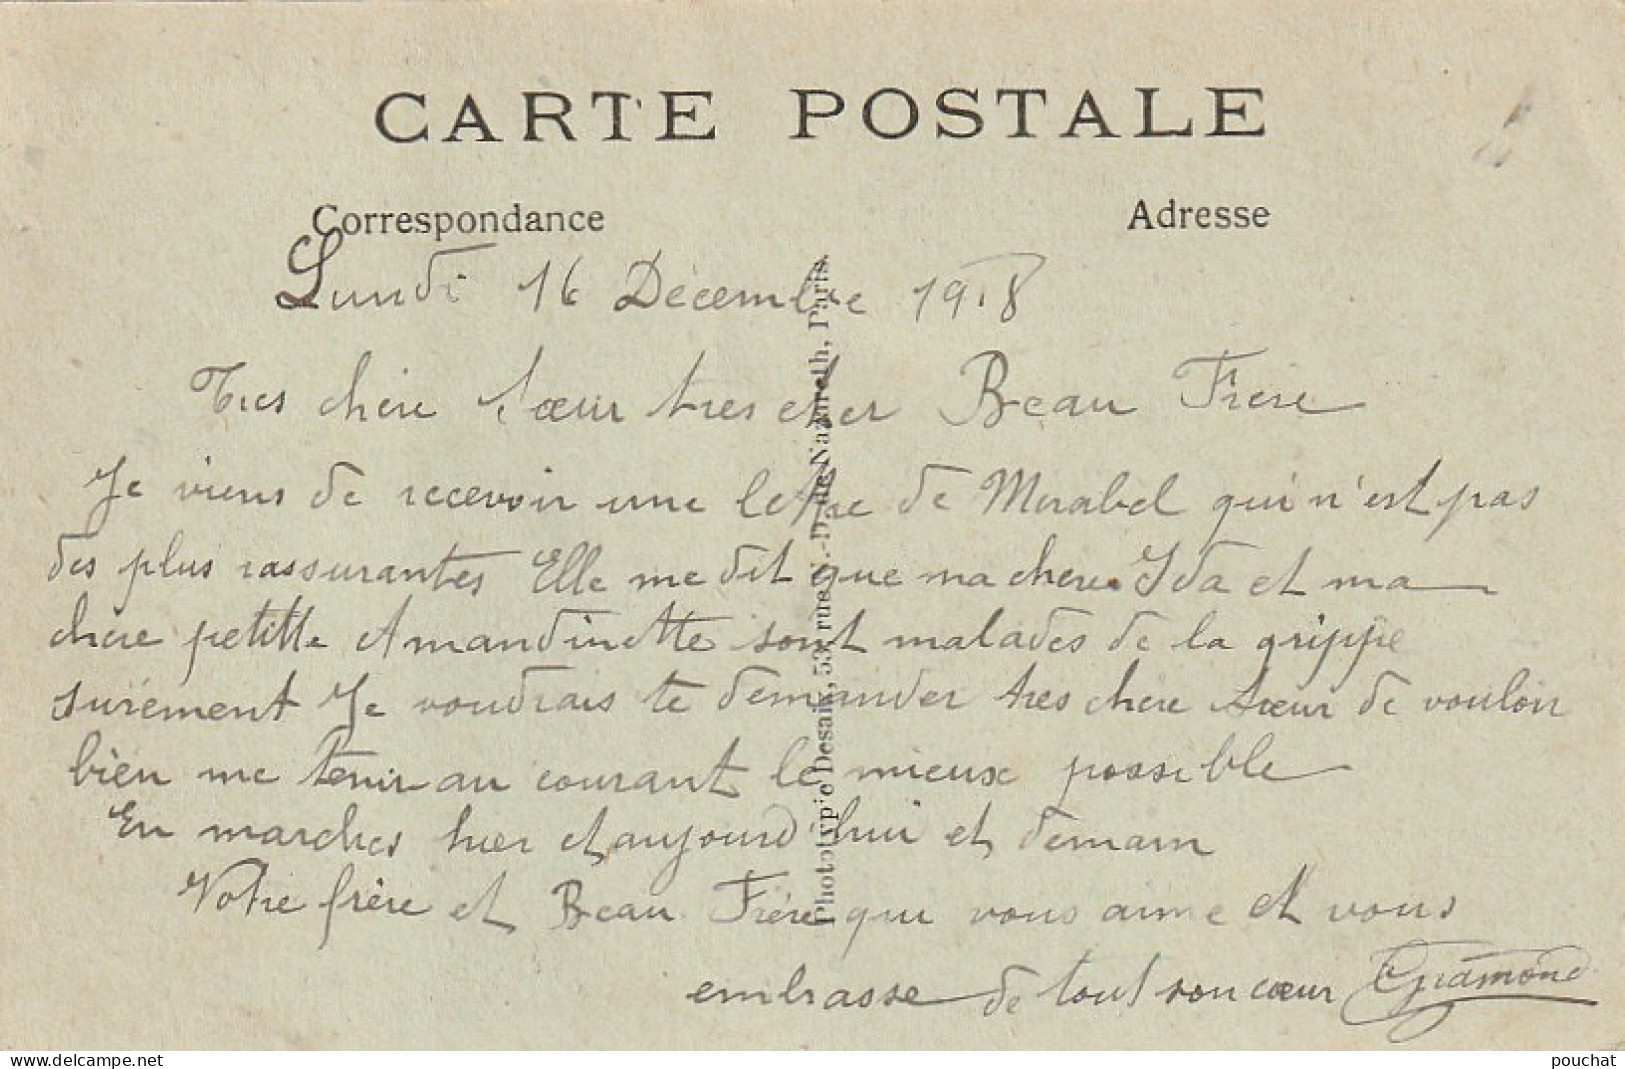 CARTE POSTALE
Correspondance
Adresse
Lundi 16 Décembre 1918
Tres chère sœur tres cher Beau Frère
Je viens de recevoir une lettre de Mirabel qui n'est pas
des plus rassurantes Elle me dit que ma chere Ida et ma
chere petitte Amandinette sont malades de la grippe
surement Je voudrais te demander tres chere sœur de vouloir
bien me tenir au courant le mieux possible
En marches hier et aujourd'hui et demain
Votre frère et Beau Frère qui vous aime et vous
embrasse de tout son cœur Gramond
Phototypie Desaix, 53, rue N.-D. de Nazareth, Paris
www.delcampe.net
pouchat